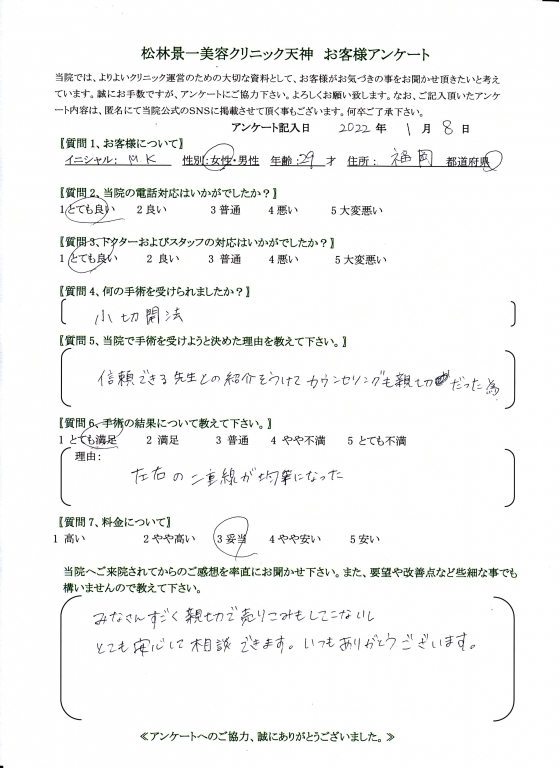 松林景一美容クリニック天神 お客様アンケート
当院では、よりよいクリニック運営のための大切な資料として、お客様がお気づきの事をお聞かせ頂きたいと考え
ています。誠にお手数ですが、アンケートにご協力下さい。よろしくお願い致します。なお、ご記入頂いたアンケ
ート内容は、匿名にて当院公式のSNSに掲載させて頂く事もございます。何卒ご了承下さい。
アンケート記入日 2022 年 1 月 8 日
〖質問1、お客様について〗
イニシャル: MK 性別:女性・男性 年齢:29 才 住所: 福岡 都道府県
〖質問2、当院の電話対応はいかがでしたか?〗
1 とても良い 2 良い 3 普通 4 悪い 5 大変悪い
〖質問3、ドクターおよびスタッフの対応はいかがでしたか?〗
1 とても良い 2 良い 3 普通 4 悪い 5 大変悪い
〖質問4、何の手術を受けられましたか?〗
小切開法
〖質問5、当院で手術を受けようと決めた理由を教えて下さい。〗
信頼できる先生との紹介をうけて カウンセリングも親切だった為
〖質問6、手術の結果について教えて下さい。〗
1 とても満足 2 満足 3 普通 4 やや不満 5 とても不満
理由:
左右の二重線が均等になった
〖質問7、料金について〗
1 高い 2 やや高い 3 妥当 4 やや安い 5 安い
当院へご来院されてからのご感想を率直にお聞かせ下さい。また、要望や改善点など些細な事でも
構いませんので教えて下さい。
みなさんすごく親切で売りこみもしてこないし
とても安心して相談できます。いつもありがとうございます。
≪アンケートへのご協力、誠にありがとうございました。≫